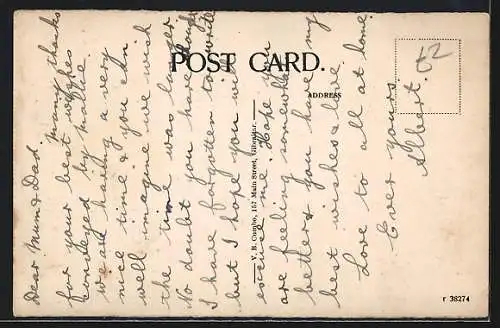 POST CARD.
ADDRESS
V. B. Cumbo, 157 Main Street, Gibraltar.
r 38274
62
Dear Mum & Dad
many thanks
for your best wishes
conveyed by Mollie
we are having a very
nice time & you can
well imagine we wish
the time was longer
No doubt you have thought
I have forgotten to write
but I hope you will
excuse me. Hope you
are feeling somewhat
better & you have my
best wishes & love
Love to all at home
Ever yours
Albert.